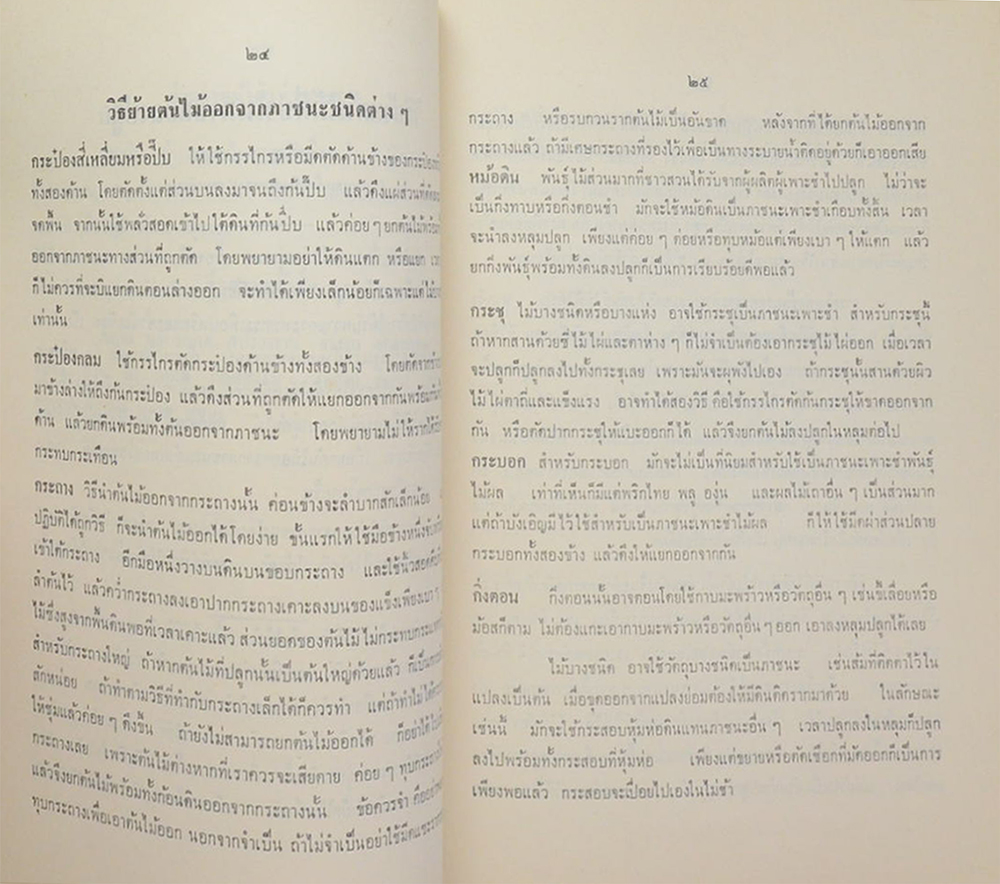 ๒๔
วิธีย้ายต้นไม้ออกจากภาชนะชนิดต่าง ๆ
กระป๋องสี่เหลี่ยมหรือปี๊บ ให้ใช้กรรไกรหรือมีดตัดด้านข้างของกระป๋อง
ทั้งสองด้าน โดยตัดตั้งแต่ส่วนบนลงมาจนถึงก้นปี๊บ แล้วดึงแผ่ส่วนที่ตัด
จดพื้น จากนั้นใช้พลั่วสอดเข้าไปใต้ดินที่ก้นปี๊บ แล้วค่อย ๆ ยกต้นไม้พร้อม
ออกจากภาชนะทางส่วนที่ถูกตัด โดยพยายามอย่าให้ดินแตก หรือแยก
ก็ไม่ควรที่จะบิแยกดินตอนล่างออก จะทำได้เพียงเล็กน้อยก็เฉพาะแต่ไม้
เท่านั้น
กระป๋องกลม ใช้กรรไกรตัดกระป๋องด้านข้างทั้งสองข้าง โดยตัดจาก
มาข้างล่างให้ถึงก้นกระป๋อง แล้วดึงส่วนที่ถูกตัดให้แยกออกจากกันพร้อมกัน
ด้าน แล้วยกดินพร้อมทั้งต้นออกจากภาชนะ โดยพยายามไม่ให้รากได้
กระทบกระเทือน
กระถาง วิธีนำต้นไม้ออกจากกระถางนั้น ค่อนข้างจะลำบากสักเล็กน้อย
ปฏิบัติได้ถูกวิธี ก็จะนำต้นไม้ออกได้โดยง่าย ขั้นแรกให้ใช้มือข้างหนึ่งจับ
เข้าใต้กระถาง อีกมือหนึ่งวางบนดินบนขอบกระถาง และใช้นิ้วสอด
ลำต้นไว้ แล้วคว่ำกระถางลงเอาปากกระถางเคาะลงบนของแข็งเพียงเบา ๆ
ไม้ซึ่งสูงจากพื้นดินพอที่เวลาเคาะแล้ว ส่วนยอดของต้นไม้ ไม่กระทบกระแทก
สำหรับกระถางใหญ่ ถ้าหากต้นไม้ที่ปลูกนั้นเป็นต้นใหญ่ด้วยแล้ว ก็เป็น
สักหน่อย ถ้าทำตามวิธีที่ทำกับกระถางเล็กได้ก็ควรทำ แต่ถ้าทำไม่ได้
ให้ชุ่มแล้วค่อย ๆ ดึงขึ้น ถ้ายังไม่สามารถยกต้นไม้ออกได้ ก็อย่า
กระถางเลย เพราะต้นไม้ต่างหากที่เราควรจะเสียดาย ค่อย ๆ ทุบกระถาง
แล้วจึงยกต้นไม้พร้อมทั้งก้อนดินออกจากกระถางนั้น ข้อควรจำ คือ
ทุบกระถางเพื่อเอาต้นไม้ออก นอกจากจำเป็น ถ้าไม่จำเป็นอย่าใช้มีดแซะ
๒๕
กระถาง หรือรบกวนรากต้นไม้เป็นอันขาด หลังจากที่ได้ยกต้นไม้ออกจาก
กระถางแล้ว ถ้ามีเศษกระถางที่รองไว้เพื่อเป็นทางระบายน้ำติดอยู่ด้วยก็เอาออกเสีย
หม้อดิน พันธุ์ไม้ส่วนมากที่ชาวสวนได้รับจากผู้ผลิตผู้เพาะชำไปปลูก ไม่ว่าจะ
เป็นกิ่งทาบหรือกิ่งตอนชำ มักจะใช้หม้อดินเป็นภาชนะเพาะชำเกือบทั้งสิ้น เวลา
จะนำลงหลุมปลูก เพียงแต่ค่อย ๆ ต่อยหรือทุบหม้อแต่เพียงเบา ๆ ให้แตก แล้ว
ยกกิ่งพันธุ์พร้อมทั้งดินลงปลูกก็เป็นการเรียบร้อยดีพอแล้ว
กระชุ ไม้บางชนิดหรือบางแห่ง อาจใช้กระชุเป็นภาชนะเพาะชำ สำหรับกระชุนี้
ถ้าหากสานด้วยซี่ไม้ไผ่และตาห่าง ๆ ก็ไม่จำเป็นต้องเอากระชุไม้ไผ่ออก เมื่อเวลา
จะปลูกก็ปลูกลงไปทั้งกระชุเลย เพราะมันจะผุพังไปเอง ถ้ากระชุนั้นสานด้วยผิว
ไม้ไผ่ตาถี่และแข็งแรง อาจทำได้สองวิธี คือใช้กรรไกรตัดก้นกระชุให้ขาดออกจาก
กัน หรือตัดปากกระชุให้แบะออกก็ได้ แล้วจึงยกต้นไม้ลงปลูกในหลุมต่อไป
กระบอก สำหรับกระบอก มักจะไม่เป็นที่นิยมสำหรับใช้เป็นภาชนะเพาะชำพันธุ์
ไม้ผล เท่าที่เห็นก็มีแต่พริกไทย พลู องุ่น และผลไม้เถาอื่น ๆ เป็นส่วนมาก
แต่ถ้าบังเอิญมีไว้ใช้สำหรับเป็นภาชนะเพาะชำไม้ผล ก็ให้ใช้มีดผ่าส่วนปลาย
กระบอกทั้งสองข้าง แล้วดึงให้แยกออกจากกัน
กิ่งตอน กิ่งตอนนั้นอาจตอนโดยใช้กาบมะพร้าวหรือวัตถุอื่น ๆ เช่นขี้เลื่อยหรือ
ม้อสก็ตาม ไม่ต้องแกะเอากาบมะพร้าวหรือวัตถุอื่น ๆ ออก เอาลงหลุมปลูกได้เลย
ไม้บางชนิด อาจใช้วัตถุบางชนิดเป็นภาชนะ เช่นส้มที่ติดตาไว้ใน
แปลงเป็นต้น เมื่อขุดออกจากแปลงย่อมต้องให้มีดินติดรากมาด้วย ในลักษณะ
เช่นนี้ มักจะใช้กระสอบหุ้มห่อดินแทนภาชนะอื่น ๆ เวลาปลูกลงในหลุมก็ปลูก
ลงไปพร้อมทั้งกระสอบที่หุ้มห่อ เพียงแต่ขยายหรือตัดเชือกที่มัดออกก็เป็นการ
เพียงพอแล้ว กระสอบจะเปื่อยไปเองในไม่ช้า